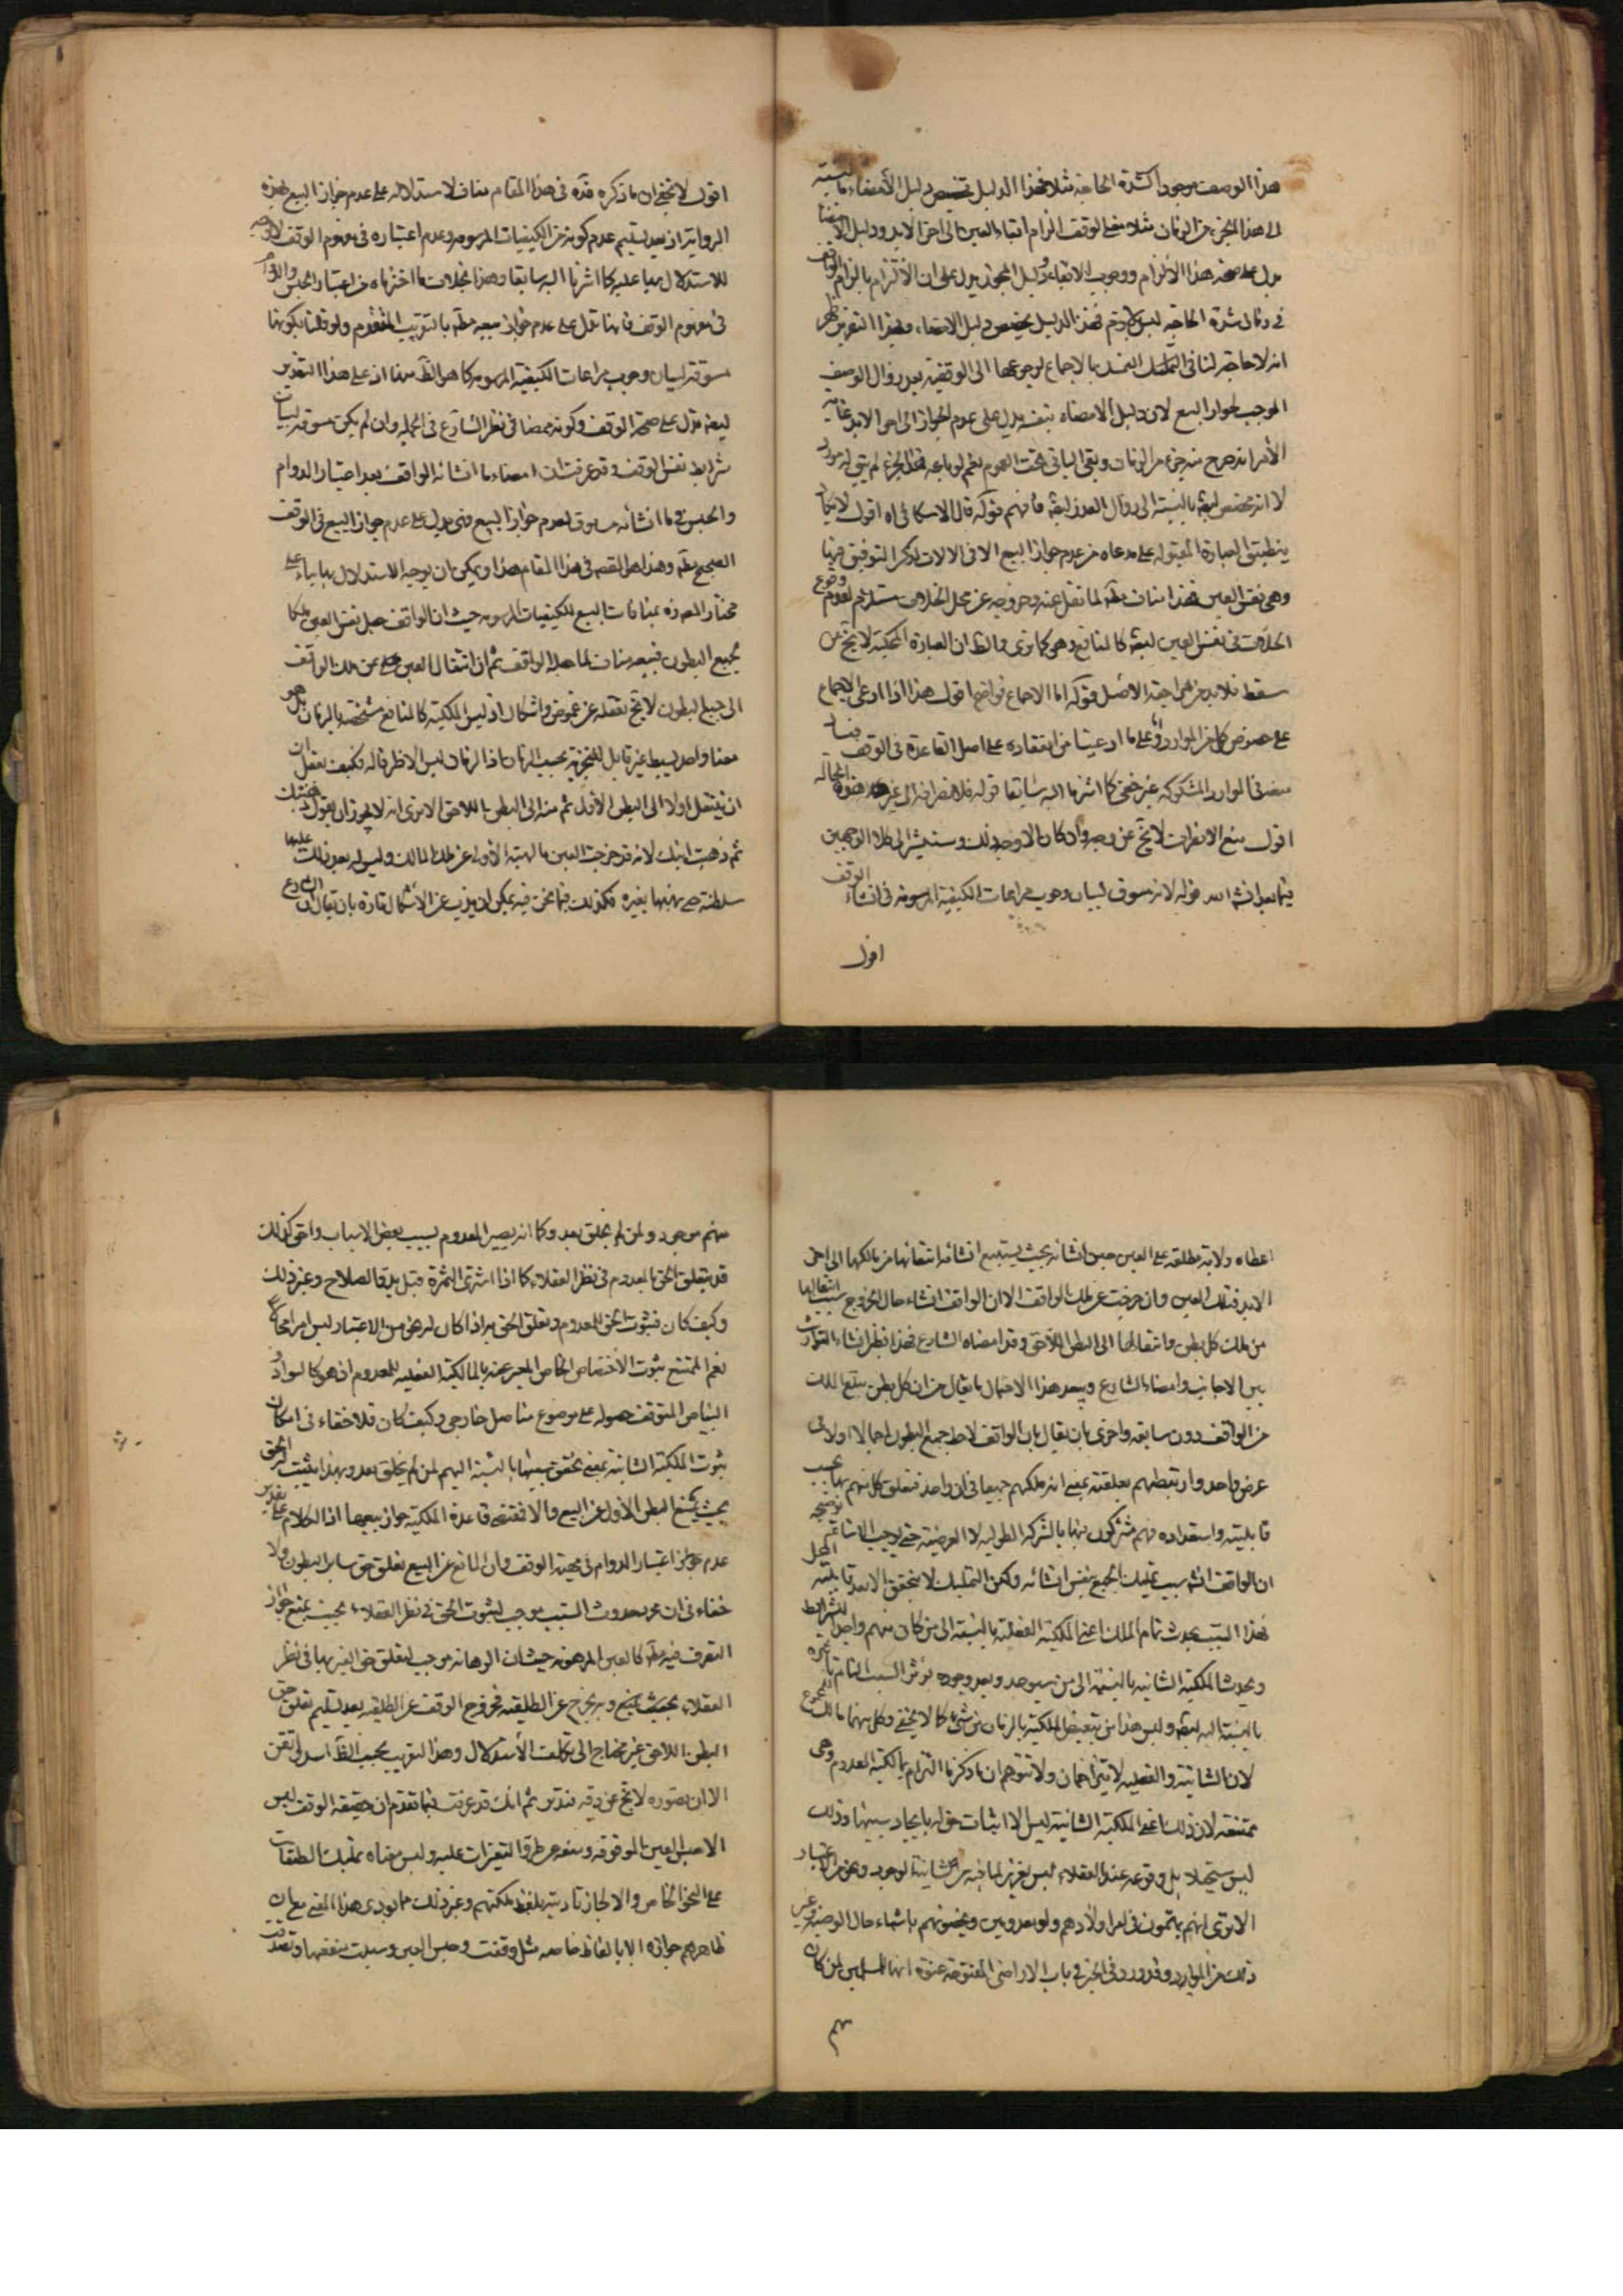 هذا الوصف موجودا كشدة الحاجة مثلا فهذا الدليل تخصص دليل الأمضاء بالنسبة
الى هذا الجزء من الزمان مثلا معنى الوقف الزام ابقاء العين الى اخر الابد ودليل الامضاء
يدل على صحة هذا الالزام ووجوب الابقاء ودليل المجوز يدل على ان الالتزام بالزام الواقف
في زمان شدة الحاجة ليس بلازم فهذا الدليل يخصص دليل الامضاء وبهذا التقرير ظهر
انه لا حاجة لنا في التمسك بالاجماع لرجوعها الى الوقفية بعد زوال الوصف
الموجب لجواز البيع لان دليل الامضاء بنفسه يدل على عدم الجواز الى اخر الابد غاية
الأمر انه خرج منه جزء من الزمان وبقى الباقى تحت العموم نعم لو باعه فى الجزء لم يبق له مورد
لا انه مختص ايضا بالنسبة الى زوال العذر ايضا فافهم قوله قال الاسكافى اه اقول لا يكاد
ينطبق العبارة المنقولة على مدعاه من عدم جواز البيع الا فى الالات لذكر التوفيق فيها
وهى نفس العين فهذا مناف لما نقل عنه وخروجه عن محل الخلاف مستلزم لعدم وقوع
الخلاف فى نفس العين ايضا كالمنافع وهو كما ترى والظ ان العبارة المحكية لا تخ عن
سقط فلا بد من مراجعة الاصل قوله اما الاجماع فواضح اقول هذا اذا ادعى الاجماع
على خصوص كل من الموارد او على ما ادعينا من انعقاده على اصل القاعدة فى الوقف فساد
منعه فى الموارد المشكوكة غير خفى كما اشرنا اليه سابقا قوله فلانصرافه الى غير هذه الحالة
اقول منع الانصراف لا يخ عن وجه وان كان الاوجه ذلك وسنشير الى كلا الوجهين
فيما بعد انشاء الله قوله لانه مسوق لبيان وجوب مراعات الكيفية المرسومة فى انشاء الوقف
اقول
اقول لا يخفى ان ما ذكره قده فى هذا المقام مناف لاستدلاله على عدم جواز البيع بهذه
الرواية اذ بعد تسليم عدم كونه من الكيفيات المرسومة وعدم اعتباره فى مفهوم الوقف لا وجه
للاستدلال بها عليه كما اشرنا اليه سابقا وهذا بخلاف ما اخترناه من اعتبار الحبس والدوام
فى مفهوم الوقف فانها تدل على عدم جواز بيعه مطم بالتقريب المتقدم ولو قلنا بكونها
مسوقة لبيان وجوب مراعات الكيفية المرسومة كما هو الظ منها اذ على هذا التقدير
ايضا تدل على صحة الوقف وكونه ممضا فى نظر الشارع فى الجملة وان لم يكن مسوقة لبيان
شرايط نفس الوقف وقد عرفت ان امضاء ما انشاه الواقف بعد اعتبار الدوام
والحبس فى ما انشائه مساوق لعدم جواز البيع فهى تدل على عدم جواز البيع فى الوقف
الصحيح مطم وهذا هو المقصود فى هذا المقام هذا ويمكن ان يوجه الاستدلال بها بناء على
مختار المص قده بمنافات البيع للكيفيات المرسومة حيث ان الواقف جعل نفس العين ملكا
لجميع البطون فبيعه مناف لما جعله الواقف ثم ان انتقال العين عن ملك الواقف
الى جميع البطون لا يخ تعقله عن غموض واشكال اذ ليس الملكية كالمنافع متخصصة بالزمان بل هو
معنا واحد بسيط غير قابل للتجزية بحسب الزمان اذ الزمان ليس الا ظرفا له فكيف يعقل ان
ان ينتقل اولا الى البطن الأول ثم منه الى البطن اللاحق الا ترى انه لا يجوز ان يقول وهبتك
ثم ذهبت ابنك لانه قد خرجت العين بالهبة الأولى عن ملك المالك وليس له بعد ذلك عليها
سلطنة حتى يهبها بغيره فكذلك فيما نحن فيه يمكن ان يذب عن الاشكال تارة بان يقال ان الشارع
اعطاه ولاية مطلقة على العين حين انشائه بحيث يستتبع انشائه انتقالها من مالكها الى اخر
الابد فتلك العين وان خرجت عن ملك الواقف الا ان الواقف انشاء حال الخروج سبب انتقالها
من ملك كل بطن وانتقالها الى البطن اللاحق وقد امضاه الشارع فهذا نظير انشاء التوارث
بين الاجانب وامضاء الشارع ويبعد هذا الاحتمال ما يقال من ان كل بطن يتلقى الملك
من الواقف دون سابقه واخرى بان يقال بان الواقف لاحظ جميع البطون اجمالا اولا فى
عرض واحد وار تبطهم بعلقته بمعنى انه ملكهم جميعا فى ان واحد فيتعلق كل منهم بها بحسب
قابليته واستعداده فهم مشتركون فيها بالشركة الطولية لا العرضية حتى يوجب الاشاعة توضيحه
ان الواقف انشاء سبب تمليك الجميع بنفس انشائه ولكن التمليك لا يتحقق الا بعد قابلية المحل
فهذا السبب يحدث تمام الملك اعنى الملكية الفعلية بالنسبة الى من كان منهم واجدا للشرايط
ويحدث الملكية الشانية بالنسبة الى من سيوجد وبعد وجوده يؤثر السبب التام تاثيره
بالنسبة اليه ايضا وليس هذا من تبعيض الملكية بالزمان من شىء كما لا يخفى وكل منهما مالك للمجموع
لان الشانية والفعلية لا يتزاحمان ولا تتوهم ان ما ذكرنا التزام بمالكية المعدوم وهى
ممتنعة لان ذلك اعنى الملكية الشانية ليس الا اثبات حق له بايجاد سببها وذلك
ليس مستحيلا بل وقوعه عند العقلاء ليس بعزيز لما فيه من شانية الوجود ونحو من الاعتبار
الا ترى انهم يهتمون فى امر اولادهم ولو معدومين ويخصونهم باشياء حال الوصية وغير
ذلك من الموارد وقد ورد فى الخبر فى باب الاراضى المفتوحة عنوة انها للمسلمين لمن كان
منهم
منهم موجود ولمن لم يخلق بعد وكما انه يصير المعدوم بسبب بعض الاسباب واحق كذلك
قد يتعلق الحق بالمعدوم فى نظر العقلاء كما اذا اشترى الثمرة قبل بدو الصلاح وغير ذلك
وكيف كان فثبوت الحق للمعدوم وتعلق الحق به اذا كان له نحو من الاعتبار ليس امرا محالا
نعم الممتنع ثبوت الأختصاص الخاص المعبر عنه بالمالكية الفعلية للمعدوم اذ هو كالسواد و
البياض المتوقف حصوله على موضوع متاصل خارجى وكيف كان فلا خفاء فى امكان
ثبوت الملكية الشانية بمعنى تحقق سببها بالنسبة اليهم لمن لم يخلق بعد وبهذا يثبت لهم الحق
بحيث يمنع البطن الأول عن البيع والا فمقتضى قاعدة الملكية جواز بيعها اذ الكلام على تقدير
عدم اعتبار الدوام فى مهية الوقف وان المانع عن البيع تعلق حق ساير البطون ولا
خفاء فى ان مجرد حدوث السبب موجب لثبوت الحق فى نظر العقلاء بحيث يمنع جواز
التصرف فيه مطم كالعين المرهونة حيث ان الرهانة موجب لتعلق حق الغير بها فى نظر
العقلاء بحيث يمنع وبه يخرج عن الطلقية فخروج الوقف عن الطلقية بعد تسليم تعلق حق
البطن اللاحق غير محتاج الى تكلف الأستدلال وهذا التقريب بحسب الظ اسد واتقن
الا ان تصوره لا يخ عن دقة فتدبر ثم انك قد عرفت فيما تقدم ان حقيقة الوقف ليس
الا حبس العين الموقوفة ومنعه عن طرق التغيرات عليه وليس معناه تمليك الطبقات
على النحو الخاص والا لجاز تاديته بلفظ ملكتهم وغير ذلك مما يودى هذا المعنى مع ان
ظاهرهم جوازه الا بالفاظ خاصة مثل وقفت وحبس العين وسبلت منفعتها وتصدقت